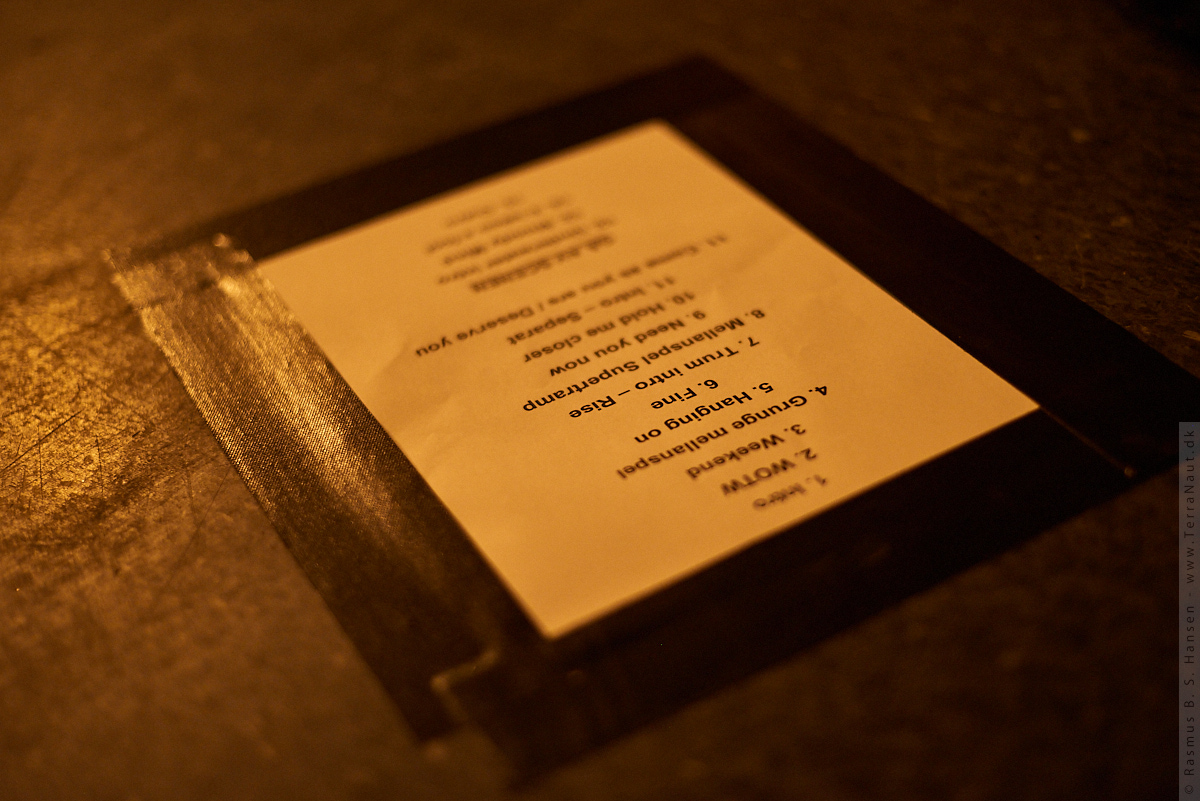 1. Intro
2. WOTW
3. Weekend
4. Grunge mellanspel
5. Hanging on
6. Fine
7. Trum intro – Rise
8. Mellanspel Supertramp
9. Need you now
10. Hold me closer
11. Intro – Separat
11. Come as you are / Deserve you
intro
© Rasmus B. S. Hansen - www.TerraNaut.dk